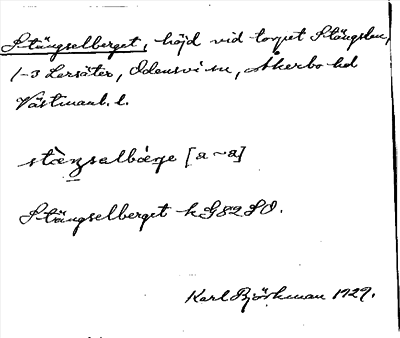 Stängselberget, höjd vid torpet Stängslen,
1-3 Lersäter, Odensvi sn, Åkerbo hd
Västmanl. l.
stæ̀ŋsalbærje [a ~ a]
Stängselberget kG82SO.
Karl Björkman 1929.